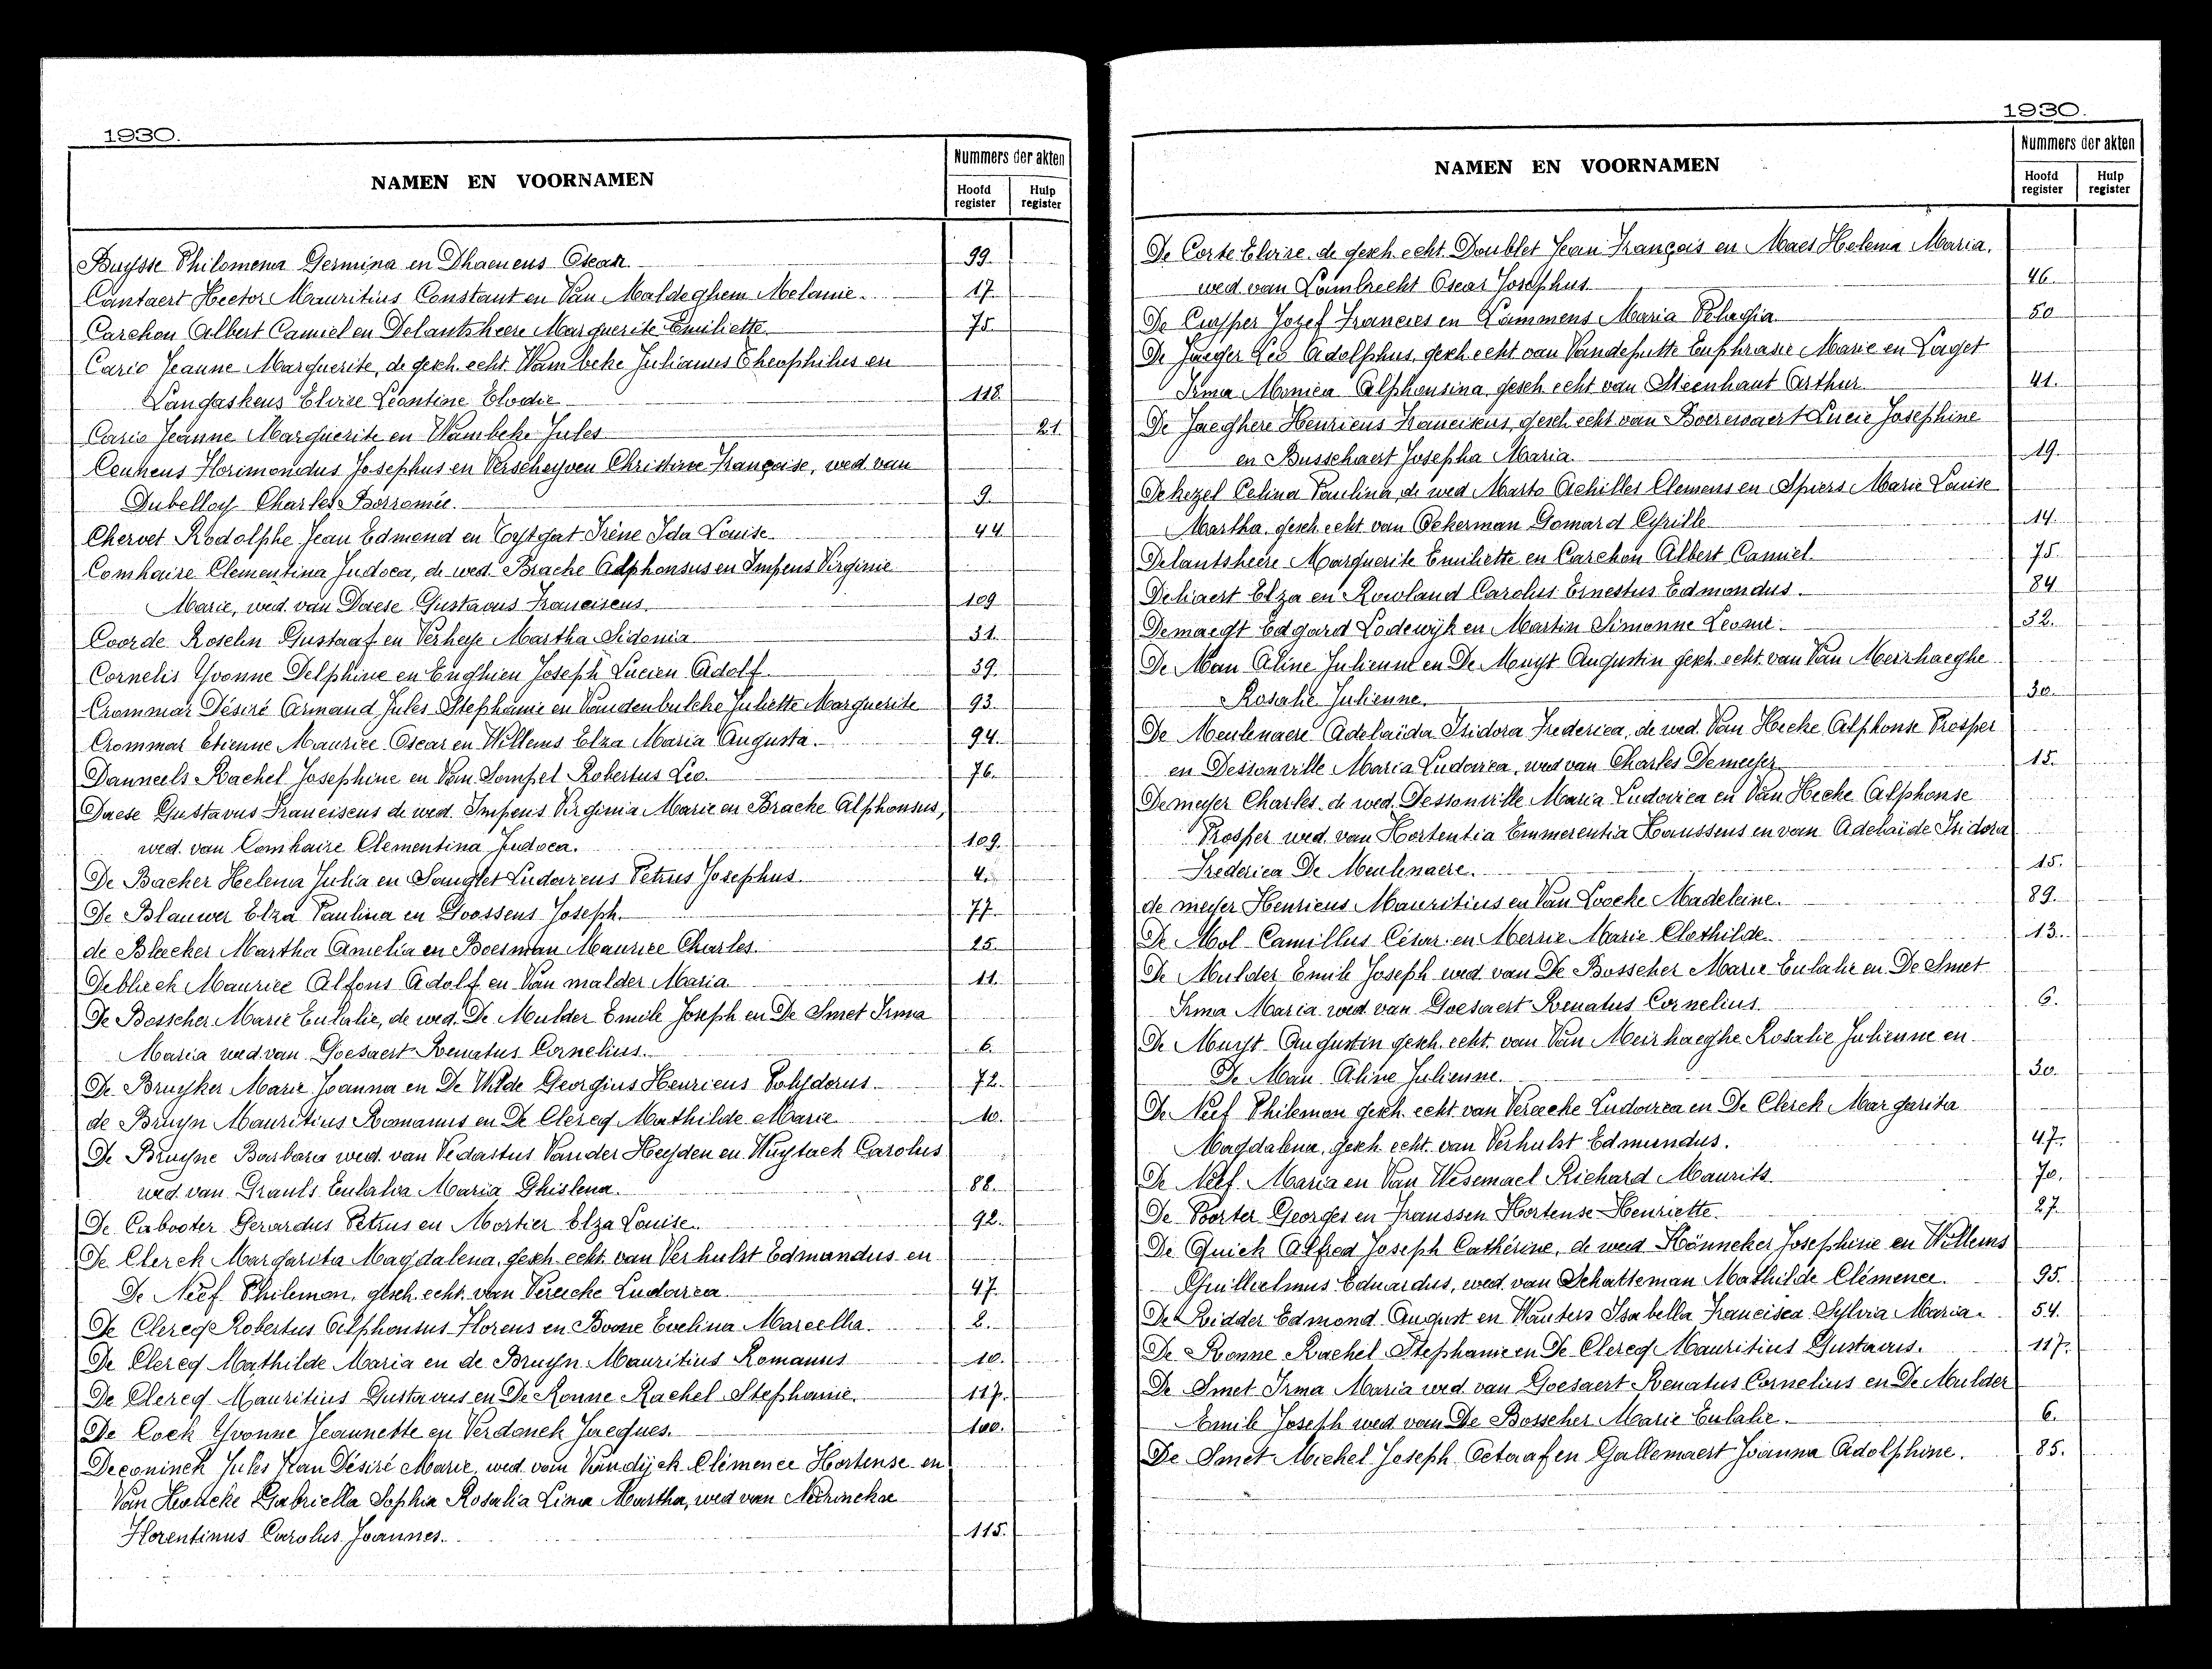 1930.
NAMEN EN VOORNAMEN
Nummers der akten
Hoofd register
Hulp register
Buysse Philomena Germina en Dhaenens Oscar 99.
Cantaert Hector Mauritius Constant en Van Maldeghem Melanie. 17.
Carchon Albert Camiel en Delantsheere Marguerite Emiliette 75.
Carie Jeanne Marguerite, de gesch. echt. Wambeke Julianus Theophilus en
Langaskens Elvire Léontine Elodie 118.
Carie Jeanne Marguerite en Wambeke Jules 21.
Ceunens Florimondus Josephus en Verscheyven Christine Françoise, wed. van
Dubelloy Charles Borromée. 9.
Chervet Rodolphe Jean Edmond en Tytgat Irène Ida Louise. 44
Comhaire Clementina Judoca, de wed. Brache Alphonsus en Impens Virginie
Marie, wed. van Daese Gustavus Franciscus. 109
Coorde Roselin Gustaaf en Verheye Martha Sidonia 31.
Cornelis Yvonne Delphine en Enghien Joseph Lucien Adolf. 39.
Crommar Désiré Armand Jules Stephanie en Vandenbulcke Juliette Marguerite 93.
Crommar Etienne Maurice Oscar en Willems Elza Maria Augusta. 94.
Danneels Rachel Josephine en Van Sompel Robertus Leo. 76.
Daese Gustavus Franciscus de wed. Impens Virginia Marie en Bracke Alphonsus,
wed. van Comhaire Clementina Judoca. 109.
De Backer Helena Julia en Sanglet Ludovicus Petrus Josephus. 4.
De Blauwer Elza Paulina en Goossens Joseph. 77.
de Bleecker Martha Amelia en Boesman Maurice Charles. 25.
Deblieck Maurice Alfons Adolf en Van malder Maria 11.
De Bosscher Marie Eulalie, de wed. De Mulder Emile Joseph en De Smet Irma
Maria wed. van Goesaert Renatus Cornelius. 6.
De Bruyker Marie Joanna en De Wilde Georgius Henricus Polydorus. 72.
de Bruyn Mauritius Romanus en De Clercq Mathilde Marie 10.
De Bruyne Barbara wed. van Vedastus Vander Heyden en Wuytack Carolus
wed. van Grauls Eulalia Maria Ghislena. 88.
De Cabooter Gerardus Petrus en Mortier Elza Louise. 92.
De Clerck Margarita Magdalena, gesch. echt. van Verhulst Edmundus en
De Neef Philemon, gesch. echt. van Vereecke Ludovica. 47.
De Clercq Robertus Alphonsus Florens en Boone Evelina Marcella. 2.
De Clercq Mathilde Maria en de Bruyn Mauritius Romanus 10.
De Clercq Mauritius Gustavus en De Ronne Rachel Stephanie. 117.
De Cock Yvonne Jeannette en Verdonck Jacques. 100.
Deconinck Jules Jean Désiré Marie, wed. van Vandijck Clémence Hortense en
Van Heucke Gabriella Sophia Rosalia Lina Martha, wed van
Florentinus Carolus Joannes. 115.
1930.
NAMEN EN VOORNAMEN
Nummers der akten
Hoofd register
Hulp register
De Corte Elvire. de gesch. echt. Doublet Jean François en Maes Helena Maria.
wed. van Lambrecht Oscar Josephus. 46.
De Cuyper Jozef Francies en Lammens Maria Pelagia 50
De Jaeger Leo Adolphus, gesch. echt van Vandeputte Euphrasie Marie en Laget
Irma Monica Alphonsina, gesch. echt van Steenhaut Arthur. 41.
De Jaeghere Henricus Franciscus, gesch echt van Boerewaert Lucie Josephine
en Busschaert Josepha Maria. 19.
Dekezel Celina Paulina, de wed Marto Achilles Clemens en Spiers Marie Louise
Martha, gesch. echt. van Ockerman Gomard Cyrille 14.
Delantsheere Marguerite Emiliette en Carchon Albert Camiel. 75.
Deliaert Elza en Rowland Carolus Ernestus Edmondus. 84
Demaegt Edgard Lodewijk en Martin Simonne Leonie. 32.
De Man Aline Julienne en De Muyt Augustin gesch. echt. van Van Meirhaeghe
Rosalie Julienne. 30.
De Meulenaere Adelaïda Isidora Frederica, de wed. Van Hecke Alphonse Prosper
en Dessonville Maria Ludovica, wed van Charles Demeyer 15.
Demeyer Charles. de wed. Dessonville Maria Ludovica en Van Hecke Alphonse
Prosper wed. van Hortentia Emmerentia Haussens en van Adelaïde Isidora
Frederica De Meulenaere. 15.
de meyer Henricus Mauritius en Van Loocke Madeleine. 89.
De Mol Camillus César en Merrie Marie Clothilde. 13.
De Mulder Emile Joseph wed van De Bosscher Marie Eulalie en De Smet
Irma Maria wed. van Goesaert Renatus Cornelius. 6.
De Muyt Augustin gesch. echt. van Van Meirhaeghe Rosalie Julienne en
De Man Aline Julienne. 30.
De Neef Philemon gesch. echt. van Vereecke Ludovica en De Clerck Margarita
Magdalena, gesch. echt. van Verhulst Edmundus. 47.
De Neef Maria en Van Wesemael Richard Maurits. 70.
De Poorter Georges en Franssen Hortense Henriette. 27.
De Quick Alfred Joseph Cathérine, de wed Hönneker Josephine en Willems
Guillielmus Eduardus, wed. van Schatteman Mathilde Clémence. 95.
De Ridder Edmond August en Wauters Isabella Francisca Sylvia Maria. 54.
De Ronne Rachel Stephanie en De Clercq Mauritius Gustavus. 117.
De Smet Irma Maria wed. van Goesaert Renatus Cornelius en De Mulder
Emile Joseph wed van De Bosscher Marie Eulalie. 6.
De Smet Michel Joseph Octaaf en Gallemaert Joanna Adolphine. 85.